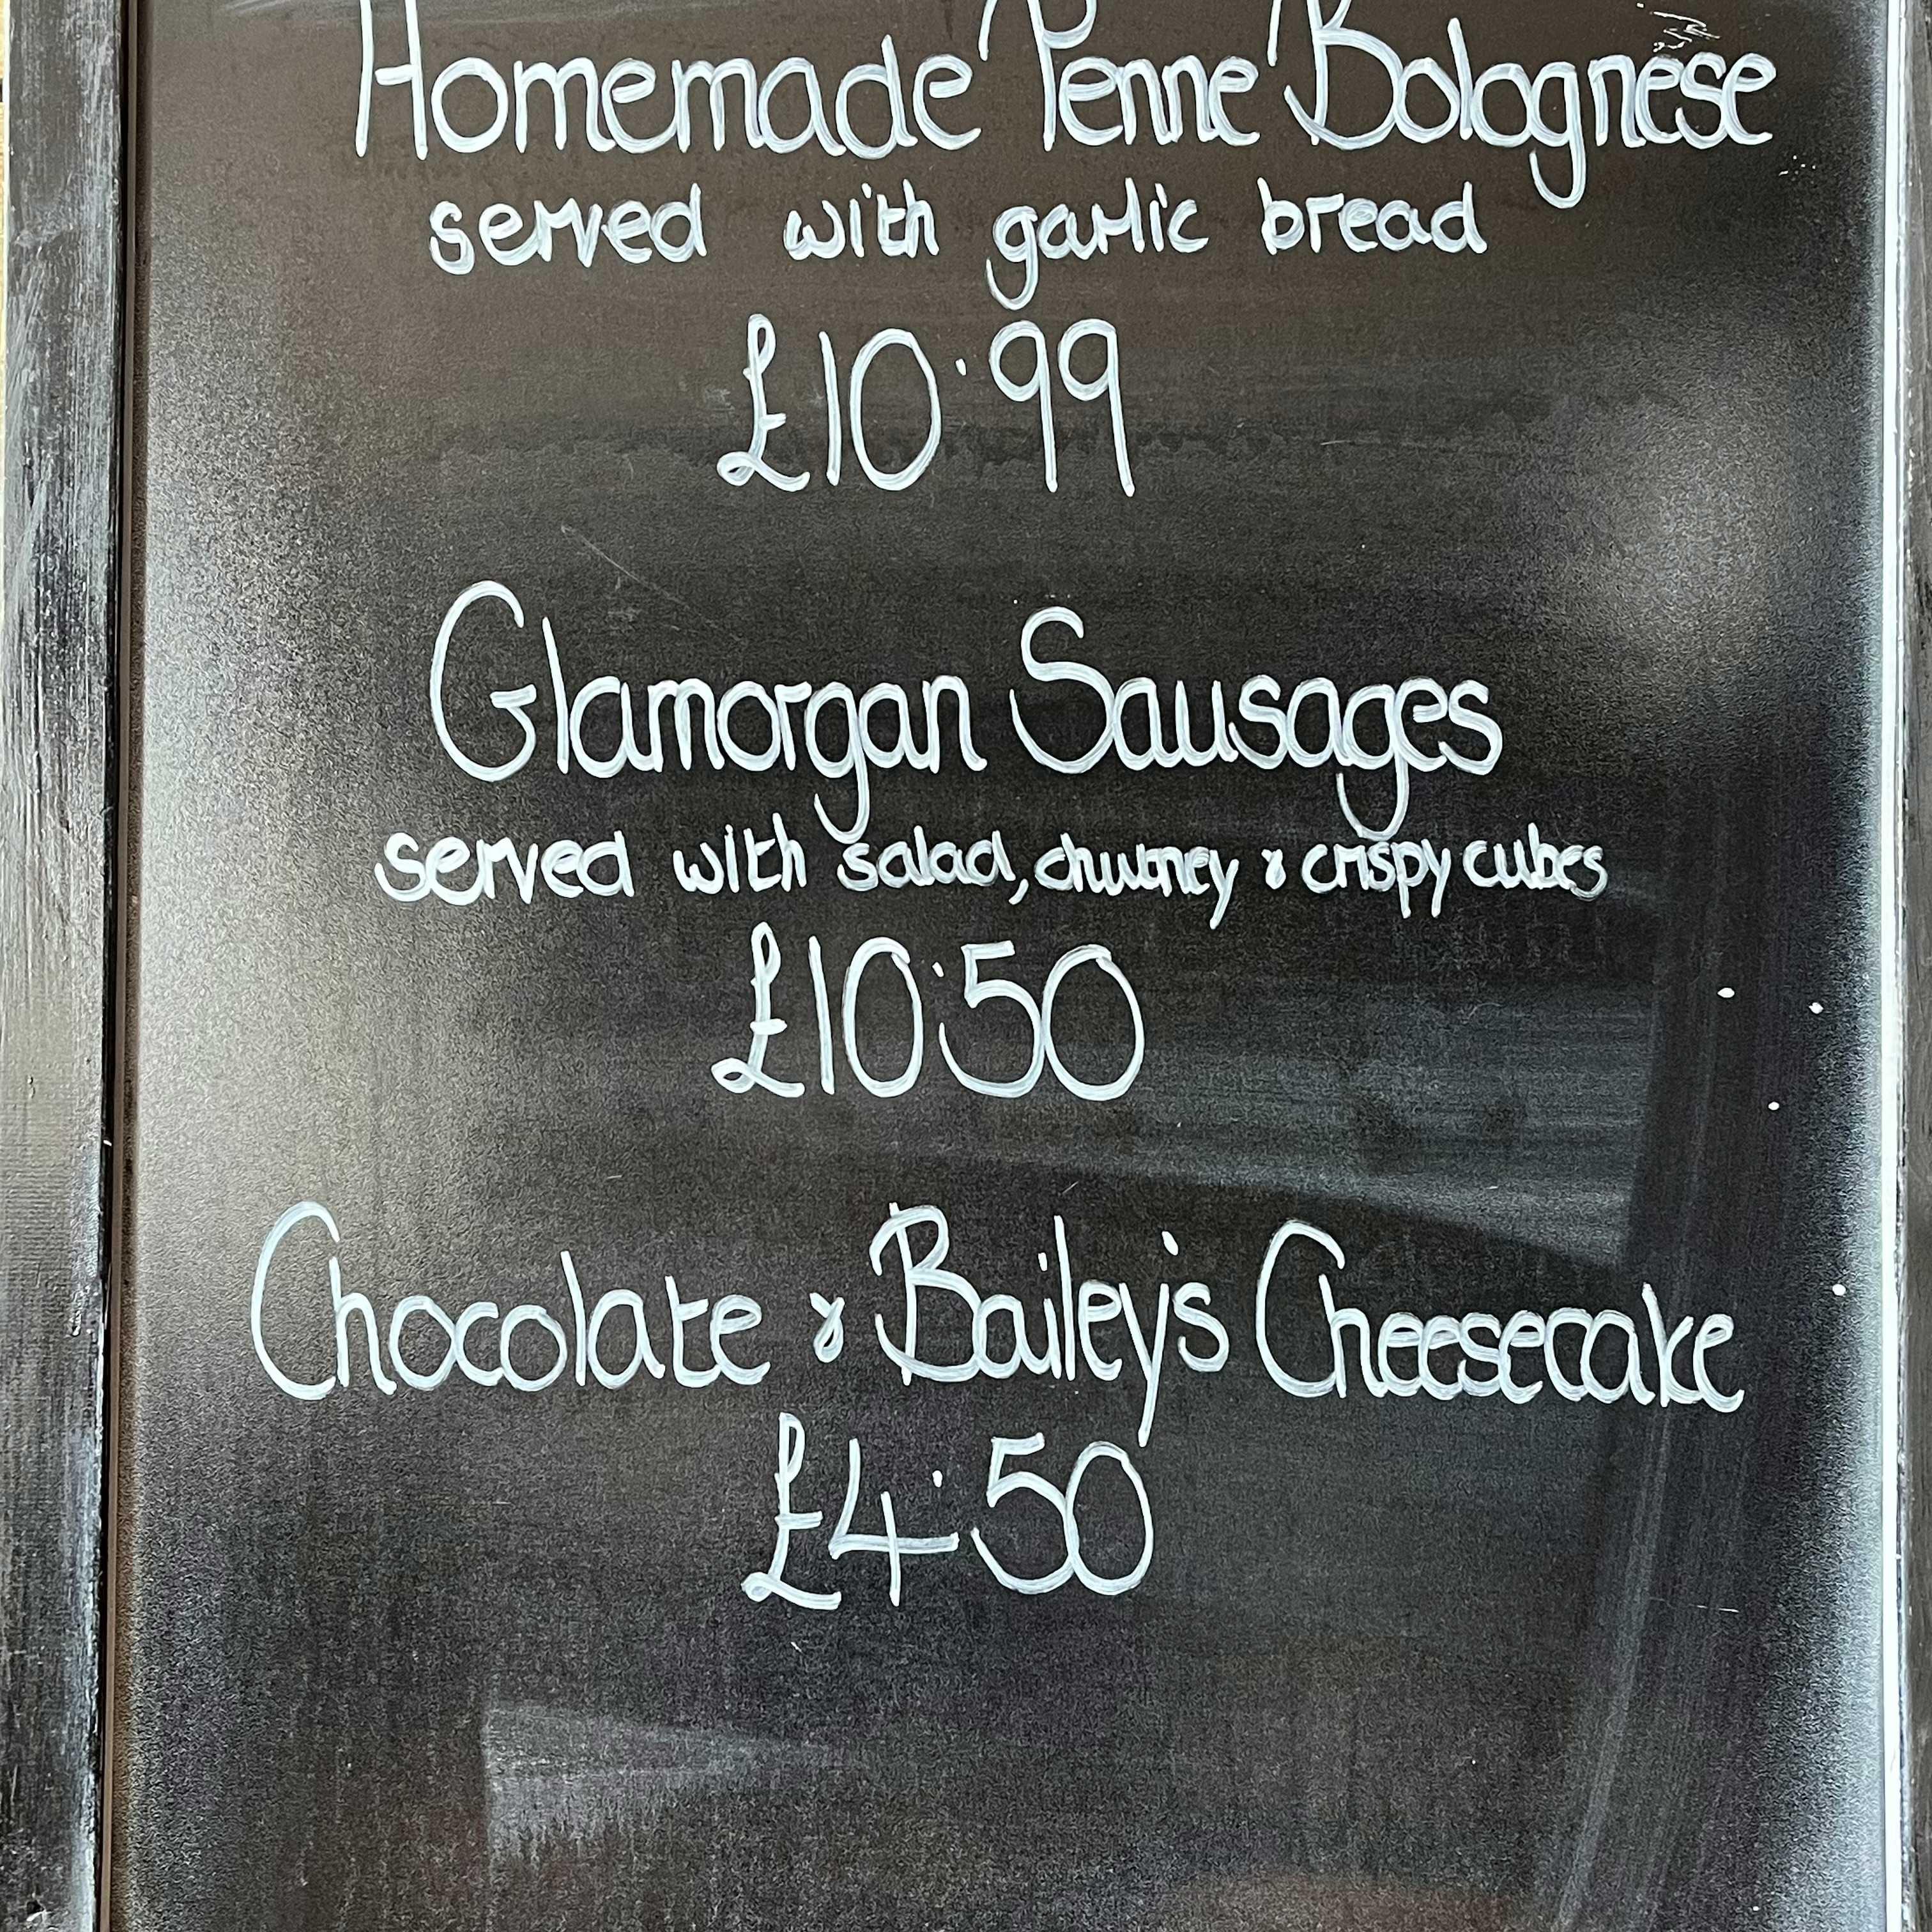 Homemade Penne Bolognese
served with garlic bread
£10.99
Glamorgan Sausages
served with salad, chutney & crispy cubes
£10.50
Chocolate & Bailey's Cheesecake
£4.50